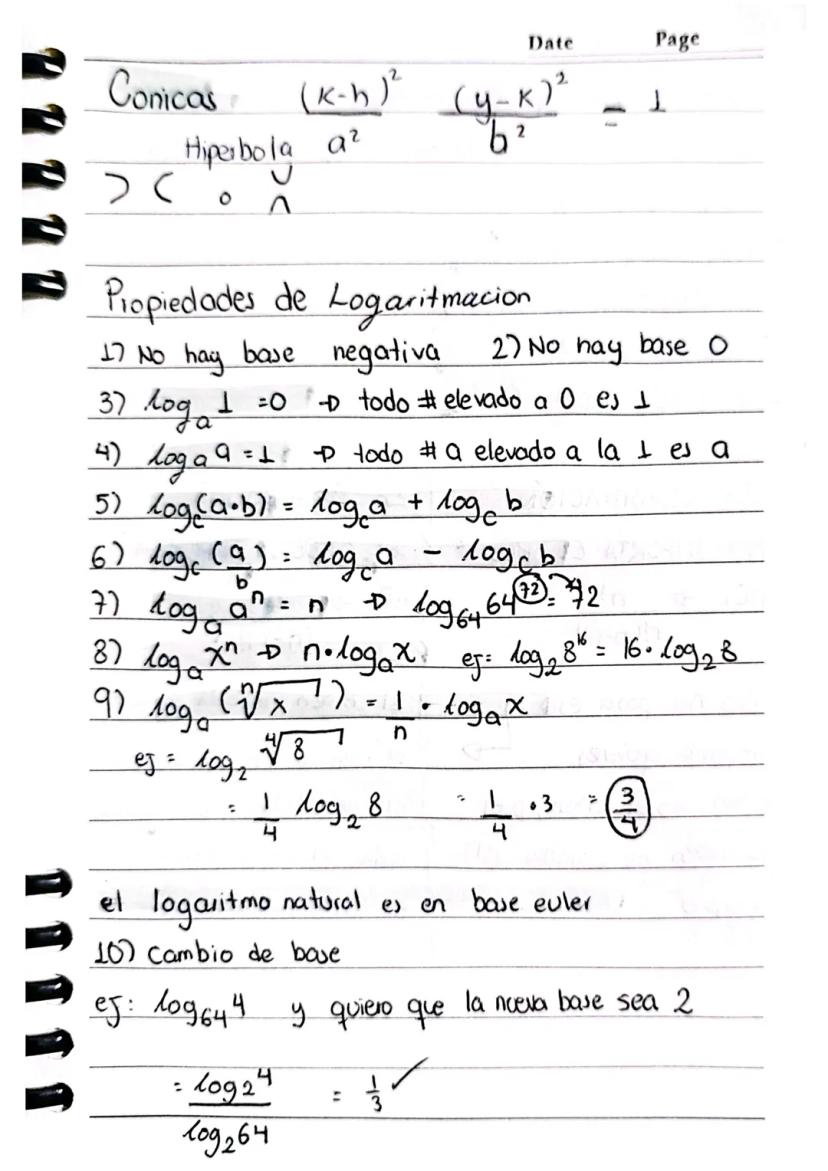 Date Page
Conicas (x-h)² (y-k)² = 1
Hiperbola a² b²
) ( o ∪ ∩
Propiedades de Logaritmacion
1) No hay base negativa 2) No hay base 0
3) logₐ 1 = 0 → todo # elevado a 0 es 1
4) logₐ a = 1 → todo # a elevado a la 1 es a
5) log_c(a·b) = log_c a + log_c b
6) log_c (a/b) = log_c a - log_c b
7) logₐ aⁿ = n → log₆₄ 64⁷² = 72
8) logₐ xⁿ → n·logₐ x. ej= log₂ 8¹⁶ = 16·log₂ 8
9) logₐ (ⁿ√x) = 1/n · logₐ x
ej = log₂ ⁴√8
= 1/4 log₂ 8 = 1/4 · 3 = 3/4
el logaritmo natural es en base euler
10) Cambio de base
ej: log₆₄ 4 y quiero que la nueva base sea 2
= log₂ 4 / log₂ 64 = 1/3 ✓